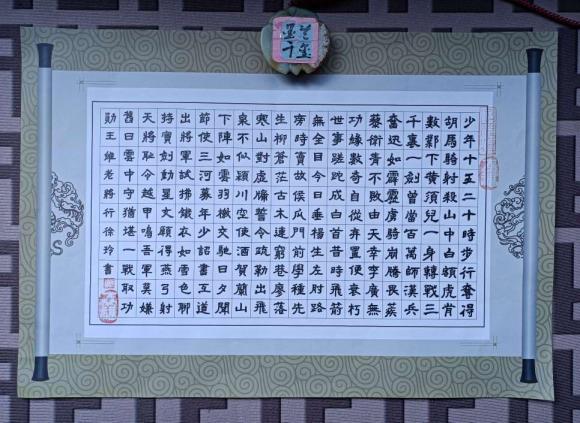 少年十五二十時步行奪得
胡馬騎射殺山中白額虎肯
數鄴下黄須兒一身轉戰三
千裏一劍曾當百萬師漢兵
奮迅如霹靂虜騎崩騰畏蒺
藜衛青不敗由天幸李廣無
功緣數奇自從弃置便衰朽
世事蹉跎成白首昔時飛箭
無全目今日垂楊生左肘路
旁時賣故侯瓜門前學種先
生柳蒼茫古木連窮巷寥落
寒山對虛牖誓令疏勒出飛
泉不似潁川空使酒賀蘭山
下陣如雲羽檄交馳日夕聞
節使三河募年少詔書五道
出將軍試拂鐵衣如雪色聊
持寶劍動星文願得燕弓射
天將耻令越甲鳴吾軍莫嫌
舊日雲中守猶堪一戰取功
勛王維老將行徐玲書